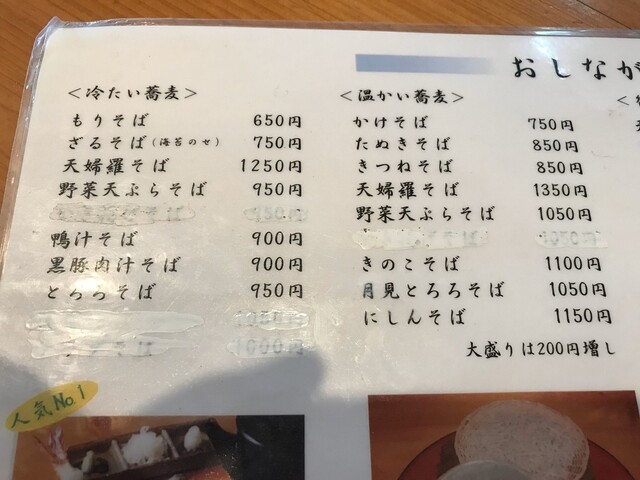 おしなが
<冷たい蕎麦>
もりそば 650円
ざるそば(海苔のせ) 750円
天婦羅そば 1250円
野菜天ぷらそば 950円
鴨汁そば 900円
黒豚肉汁そば 900円
とろろそば 950円
人気No.1
<温かい蕎麦>
かけそば 750円
たぬきそば 850円
きつねそば 850円
天婦羅そば 1350円
野菜天ぷらそば 1050円
きのこそば 1100円
月見とろろそば 1050円
にしんそば 1150円
大盛りは200円増し